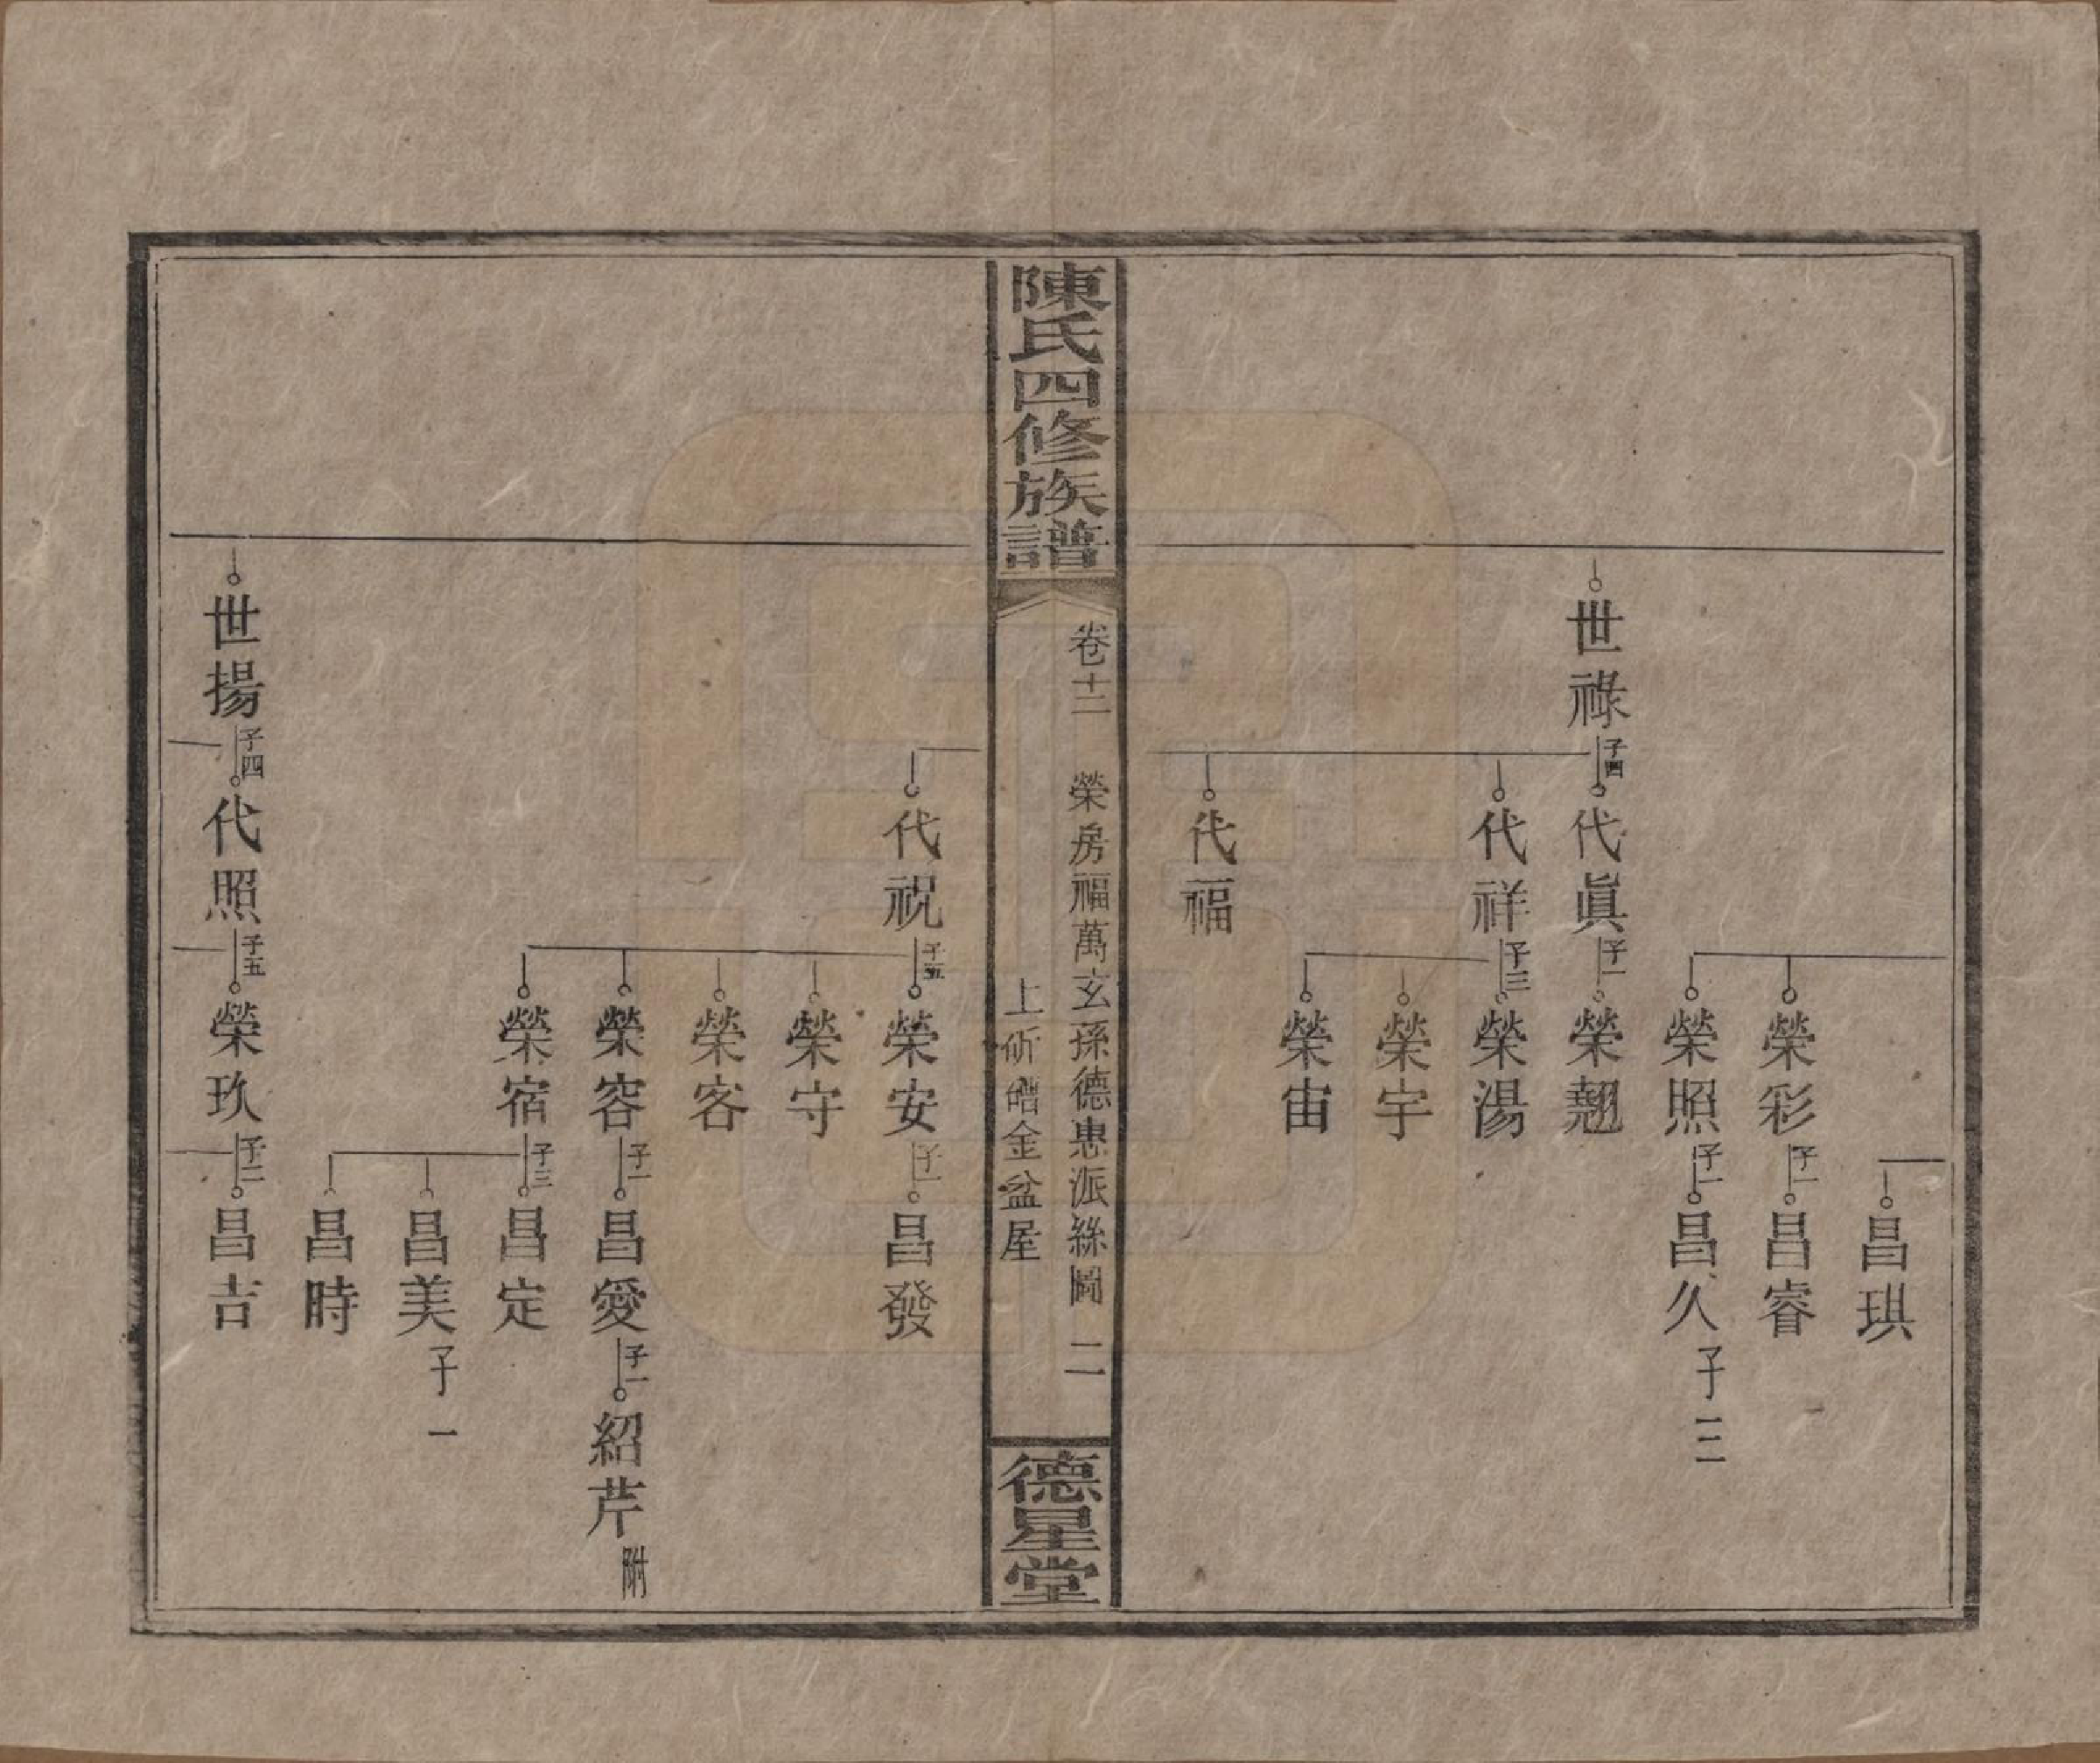 昌琪
榮彩 子一 昌睿
榮照 子一 昌久 子二
世祿 子四 代眞 子一 榮翹
代祥 子三 榮湯
榮宇
榮宙
代福
陳氏四修族譜
卷十二 榮房福萬玄孫德惠派絲圖 二
上 金盆屋
德星堂
代祝 子五 榮安 子一 昌發
榮守
榮客
榮容 子一 昌愛 子一 紹芹 附
榮宿 子三 昌定
昌美 子一
昌時
世揚 子四 代照 子五 榮玖 子二 昌吉